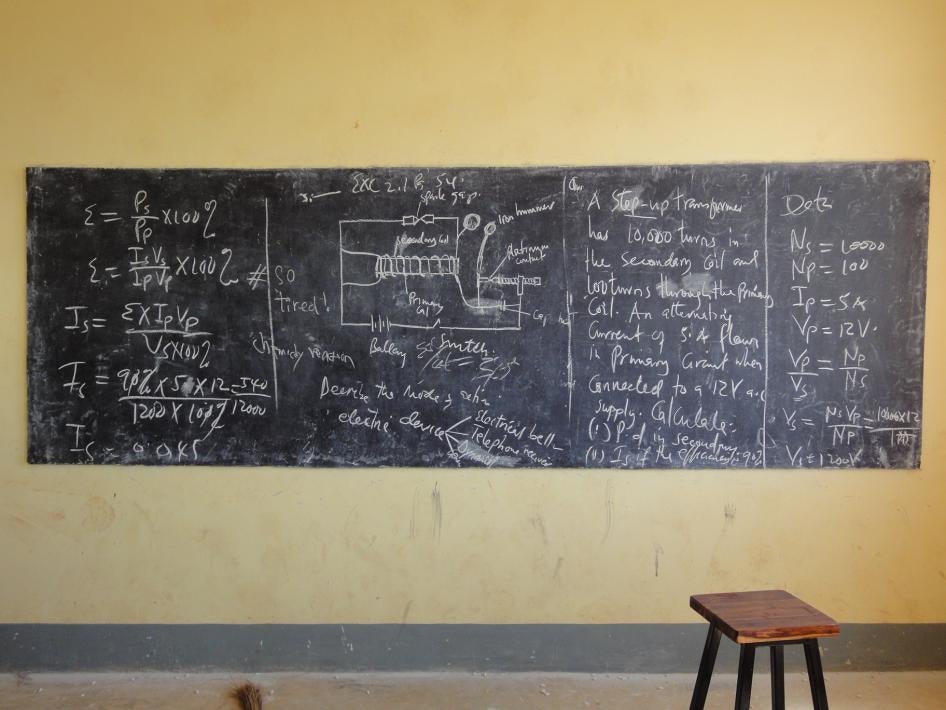 Σ = Ps/Pp ×100%
Σ = IsVs/IpVp ×100% #
Is = Σ×IpVp/Vs×100%
Is = 90% × 5 × 12 = 540/1200 × 100% 12000
Is = 0.045
So
Tired!
EXC 2.1 P. 54.
spark gap.
Iron hammer
secondary coil
platinum contact
Primary Coil
Battery
Switch.
Describe the mode of
electric device
Electrical bell
Telephone
A Step-up transformer
has 10,000 turns in
the secondary coil and
100 turns through the primary
Coil. An alternating
Current of 5.A flows
in Primary Circuit when
Connected to a 12V a.c
supply. Calculate:
(i) P.d in secondary
(ii) Is if the efficiency = 90%
Data
Ns = 10000
Np = 100
Ip = 5A
Vp = 12V.
Vp/Vs = Np/Ns
Vs = NsVp/Np = 10000×12/100
Vs = 1200V